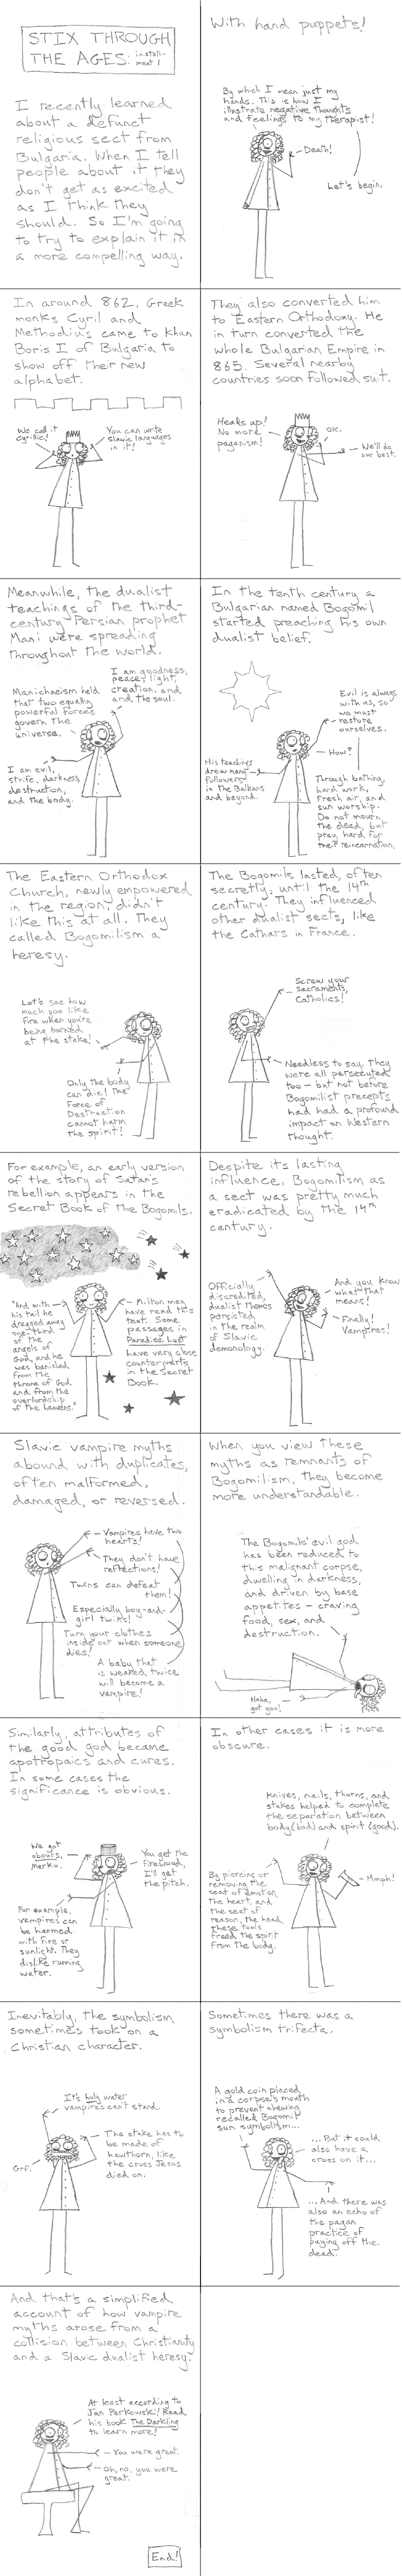 STIX THROUGH
THE AGES: install-
ment 1
I recently learned
about a defunct
religious sect from
Bulgaria. When I tell
people about it they
don't get as excited
as I think they
should. So I'm going
to try to explain it in
a more compelling way.
With hand puppets!
By which I mean just my
hands. This is how I
illustrate negative thoughts
and feelings to my therapist!
Death!
Let's begin.
In around 862, Greek
monks Cyril and
Methodius came to Khan
Boris I of Bulgaria to
show off their new
alphabet.
We call it
Cyrillic!
You can write
Slavic languages
in it!
They also converted him
to Eastern Orthodoxy. He
in turn converted the
whole Bulgarian Empire in
865. Several nearby
countries soon followed suit.
Heads up!
No more
paganism!
OK.
We'll do
our best.
Meanwhile, the dualist
teachings of the third-
century Persian prophet
Mani were spreading
throughout the world.
I am goodness,
peace, light,
creation, and
and the soul.
Manichaeism held
that two equally
powerful forces
govern the
universe.
I am evil,
strife, darkness,
destruction,
and the body.
In the tenth century a
Bulgarian named Bogomil
started preaching his own
dualist belief.
Evil is always
with us, so
we must
restore
ourselves.
How?
His teachings
drew many
followers
in the Balkans
and beyond.
Through bathing,
hard work,
fresh air, and
sun worship.
Do not mourn
the dead, but
pray hard for
their reincarnation.
The Eastern Orthodox
Church, newly empowered
in the region, didn't
like this at all. They
called Bogomilism a
heresy.
Let's see how
much you like
fire when you're
being burned
at the stake!
Only the body
can die! The
Force of
Destruction
cannot harm
the spirit!
The Bogomils lasted, often
secretly, until the 14th
century. They influenced
other dualist sects, like
the Cathars in France.
Screw your
sacraments,
Catholics!
Needless to say, they
were all persecuted
too - but not before
Bogomilist precepts
had had a profound
impact on Western
thought.
For example, an early version
of the story of Satan's
rebellion appears in the
Secret Book of the Bogomils.
"And with
his tail he
dragged away
one-third
of the
angels of
God, and he
was banished
from the
throne of God
and from the
overlordship
of the heavens."
Milton may
have read this
text. Some
passages in
Paradise Lost
have very close
counterparts
in the Secret
Book.
Despite its lasting
influence, Bogomilism as
a sect was pretty much
eradicated by the 14th
century.
Officially
discredited,
dualist themes
persisted
in the realm
of Slavic
demonology.
And you know
what that
means!
Finally!
Vampires!
Slavic vampire myths
abound with duplicates,
often malformed,
damaged, or reversed.
Vampires have two
hearts!
They don't have
reflections!
Twins can defeat
them!
Especially boy-and-
girl twins!
Turn your clothes
inside out when someone
dies!
A baby that
is weaned twice
will become a
vampire!
When you view these
myths as remnants of
Bogomilism, they become
more understandable.
The Bogomils' evil god
has been reduced to
this malignant corpse,
dwelling in darkness,
and driven by base
appetites - craving
food, sex, and
destruction.
Haha,
got you!
Similarly, attributes of
the good god became
apotropaics and cures.
In some cases the
significance is obvious.
We got
obours,
Marko.
You get the
firewood,
I'll get
the pitch.
For example,
vampires can
be harmed
with fire or
sunlight. They
dislike running
water.
In other cases it is more
obscure.
Knives, nails, thorns, and
stakes helped to complete
the separation between
body (bad) and spirit (good).
By piercing or
removing the
seat of emotion,
the heart,
and the
seat of
reason, the head,
these tools
freed the spirit
from the body.
Mmph!
Inevitably, the symbolism
sometimes took on a
Christian character.
It's holy water
vampires can't stand.
Grr.
The stake has to
be made of
hawthorn, like
the cross Jesus
died on.
Sometimes there was a
symbolism trifecta.
A gold coin placed
in a corpse's mouth
to prevent chewing
recalled Bogomil
sun symbolism...
...But it could
also have a
cross on it...
...And there was
also an echo of
the pagan
practice of
paying off the
dead.
And that's a simplified
account of how vampire
myths arose from a
collision between Christianity
and a Slavic dualist heresy!
At least according to
Jan Perkowski! Read
his book The Darkling
to learn more!
You were great.
Oh, no, you were
great.
End!